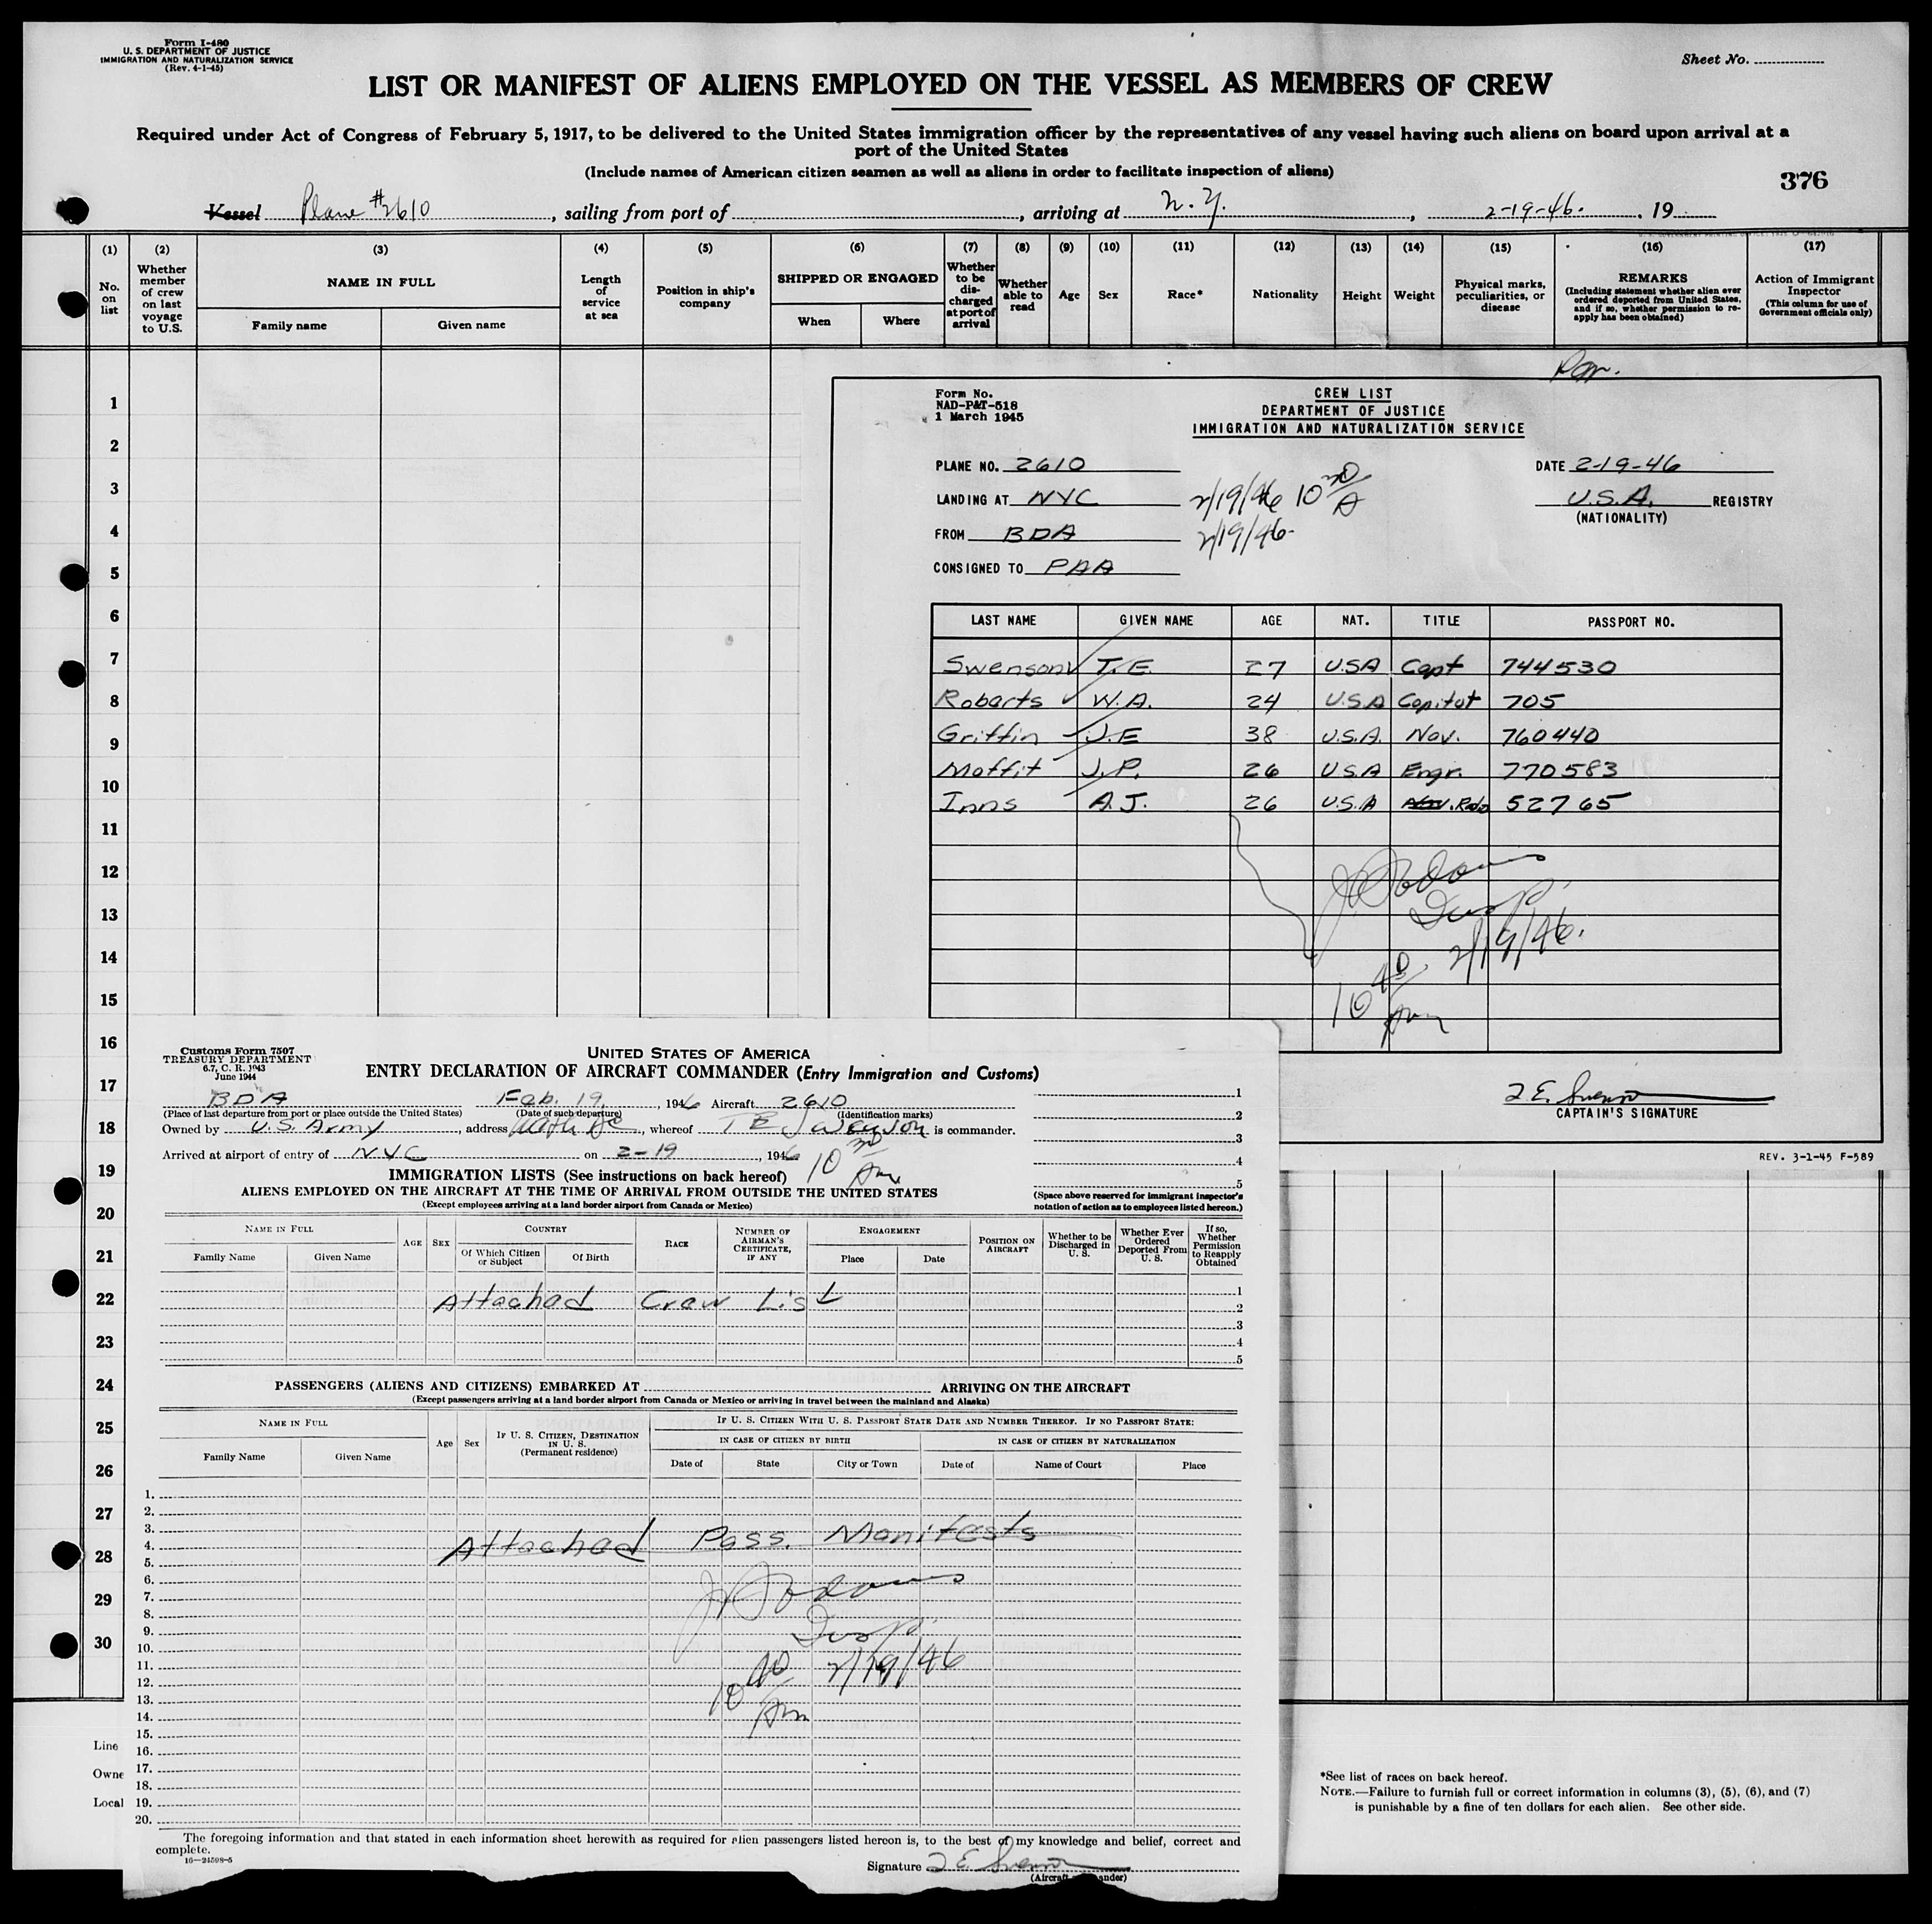 Form I-480
U. S. DEPARTMENT OF JUSTICE
IMMIGRATION AND NATURALIZATION SERVICE
(Rev. 4-1-45)
Sheet No.
LIST OR MANIFEST OF ALIENS EMPLOYED ON THE VESSEL AS MEMBERS OF CREW
Required under Act of Congress of February 5, 1917, to be delivered to the United States immigration officer by the representatives of any vessel having such aliens on board upon arrival at a
port of the United States
(Include names of American citizen seamen as well as aliens in order to facilitate inspection of aliens)
376
Vessel Plane #2610, sailing from port of , arriving at N.Y., 2-19-46. , 19
(1) (2) (3) (4) (5) (6) (7) (8) (9) (10) (11) (12) (13) (14) (15) (16) (17)
No. on list
Whether member of crew on last voyage to U.S.
NAME IN FULL
Family name
Given name
Length of service at sea
Position in ship's company
SHIPPED OR ENGAGED
When
Where
Whether to be discharged at port of arrival
Whether able to read
Age
Sex
Race*
Nationality
Height
Weight
Physical marks, peculiarities, or disease
REMARKS
(Including statement whether alien ever ordered deported from United States, and if so, whether permission to reapply has been obtained)
Action of Immigrant Inspector
(This column for use of Government officials only)
1
2
3
4
5
6
7
8
9
10
11
12
13
14
15
16
17
18
19
20
21
22
23
24
25
26
27
28
29
30
Line
Owne
Local
Form No.
NAD-P&T-518
1 March 1945
CREW LIST
DEPARTMENT OF JUSTICE
IMMIGRATION AND NATURALIZATION SERVICE
PLANE NO. 2610
DATE 2-19-46
LANDING AT NYC
2/19/46 10 30/A
U.S.A. REGISTRY
(NATIONALITY)
FROM BDA
2/19/46
CONSIGNED TO PAA
LAST NAME GIVEN NAME AGE NAT. TITLE PASSPORT NO.
Swenson T.E. 27 USA Capt 744530
Roberts W.A. 24 U.S.A 705
Griffin J.E 38 U.S.A. Nav. 760440
Moffit J.P. 26 USA Engr. 770583
Inns A.J. 26 U.S.A 52765
Insp.
2/19/46.
10 40 Am
T E. Swenson
CAPTAIN'S SIGNATURE
REV. 3-1-45 F-589
Customs Form 7507
TREASURY DEPARTMENT
6.7, C. R. 1943
June 1944
UNITED STATES OF AMERICA
ENTRY DECLARATION OF AIRCRAFT COMMANDER (Entry Immigration and Customs)
BDA Feb. 19, 1946 Aircraft 2610
(Place of last departure from port or place outside the United States) (Date of such departure) (Identification marks)
Owned by U.S. Army, address Wash DC, whereof T E Swenson is commander.
Arrived at airport of entry of NYC on 2-19, 1946 10 30 Am
1
2
3
4
5
IMMIGRATION LISTS (See instructions on back hereof)
ALIENS EMPLOYED ON THE AIRCRAFT AT THE TIME OF ARRIVAL FROM OUTSIDE THE UNITED STATES
(Except employees arriving at a land border airport from Canada or Mexico)
(Space above reserved for immigrant inspector's
notation of action as to employees listed hereon.)
NAME IN FULL
Family Name
Given Name
AGE
SEX
COUNTRY
Of Which Citizen or Subject
Of Birth
RACE
NUMBER OF AIRMAN'S CERTIFICATE, IF ANY
ENGAGEMENT
Place
Date
POSITION ON AIRCRAFT
Whether to be Discharged in U. S.
Whether Ever Ordered Deported From U. S.
If so, Whether Permission to Reapply Obtained
1
2
3
4
5
Attached Crew List
PASSENGERS (ALIENS AND CITIZENS) EMBARKED AT ARRIVING ON THE AIRCRAFT
(Except passengers arriving at a land border airport from Canada or Mexico or arriving in travel between the mainland and Alaska)
NAME IN FULL
Family Name
Given Name
Age
Sex
IF U. S. CITIZEN, DESTINATION IN U. S.
(Permanent residence)
IF U. S. CITIZEN WITH U. S. PASSPORT STATE DATE AND NUMBER THEREOF. IF NO PASSPORT STATE:
IN CASE OF CITIZEN BY BIRTH
IN CASE OF CITIZEN BY NATURALIZATION
Date of
State
City or Town
Date of
Name of Court
Place
1.
2.
3.
4.
5.
6.
7.
8.
9.
10.
11.
12.
13.
14.
15.
16.
17.
18.
19.
20.
Attached Pass. Manifests
Insp.
10 40 Am 2/19/46
The foregoing information and that stated in each information sheet herewith as required for alien passengers listed hereon is, to the best of my knowledge and belief, correct and
complete.
16—24598-5
Signature T E. Swenson
*See list of races on back hereof.
NOTE.—Failure to furnish full or correct information in columns (3), (5), (6), and (7)
is punishable by a fine of ten dollars for each alien. See other side.